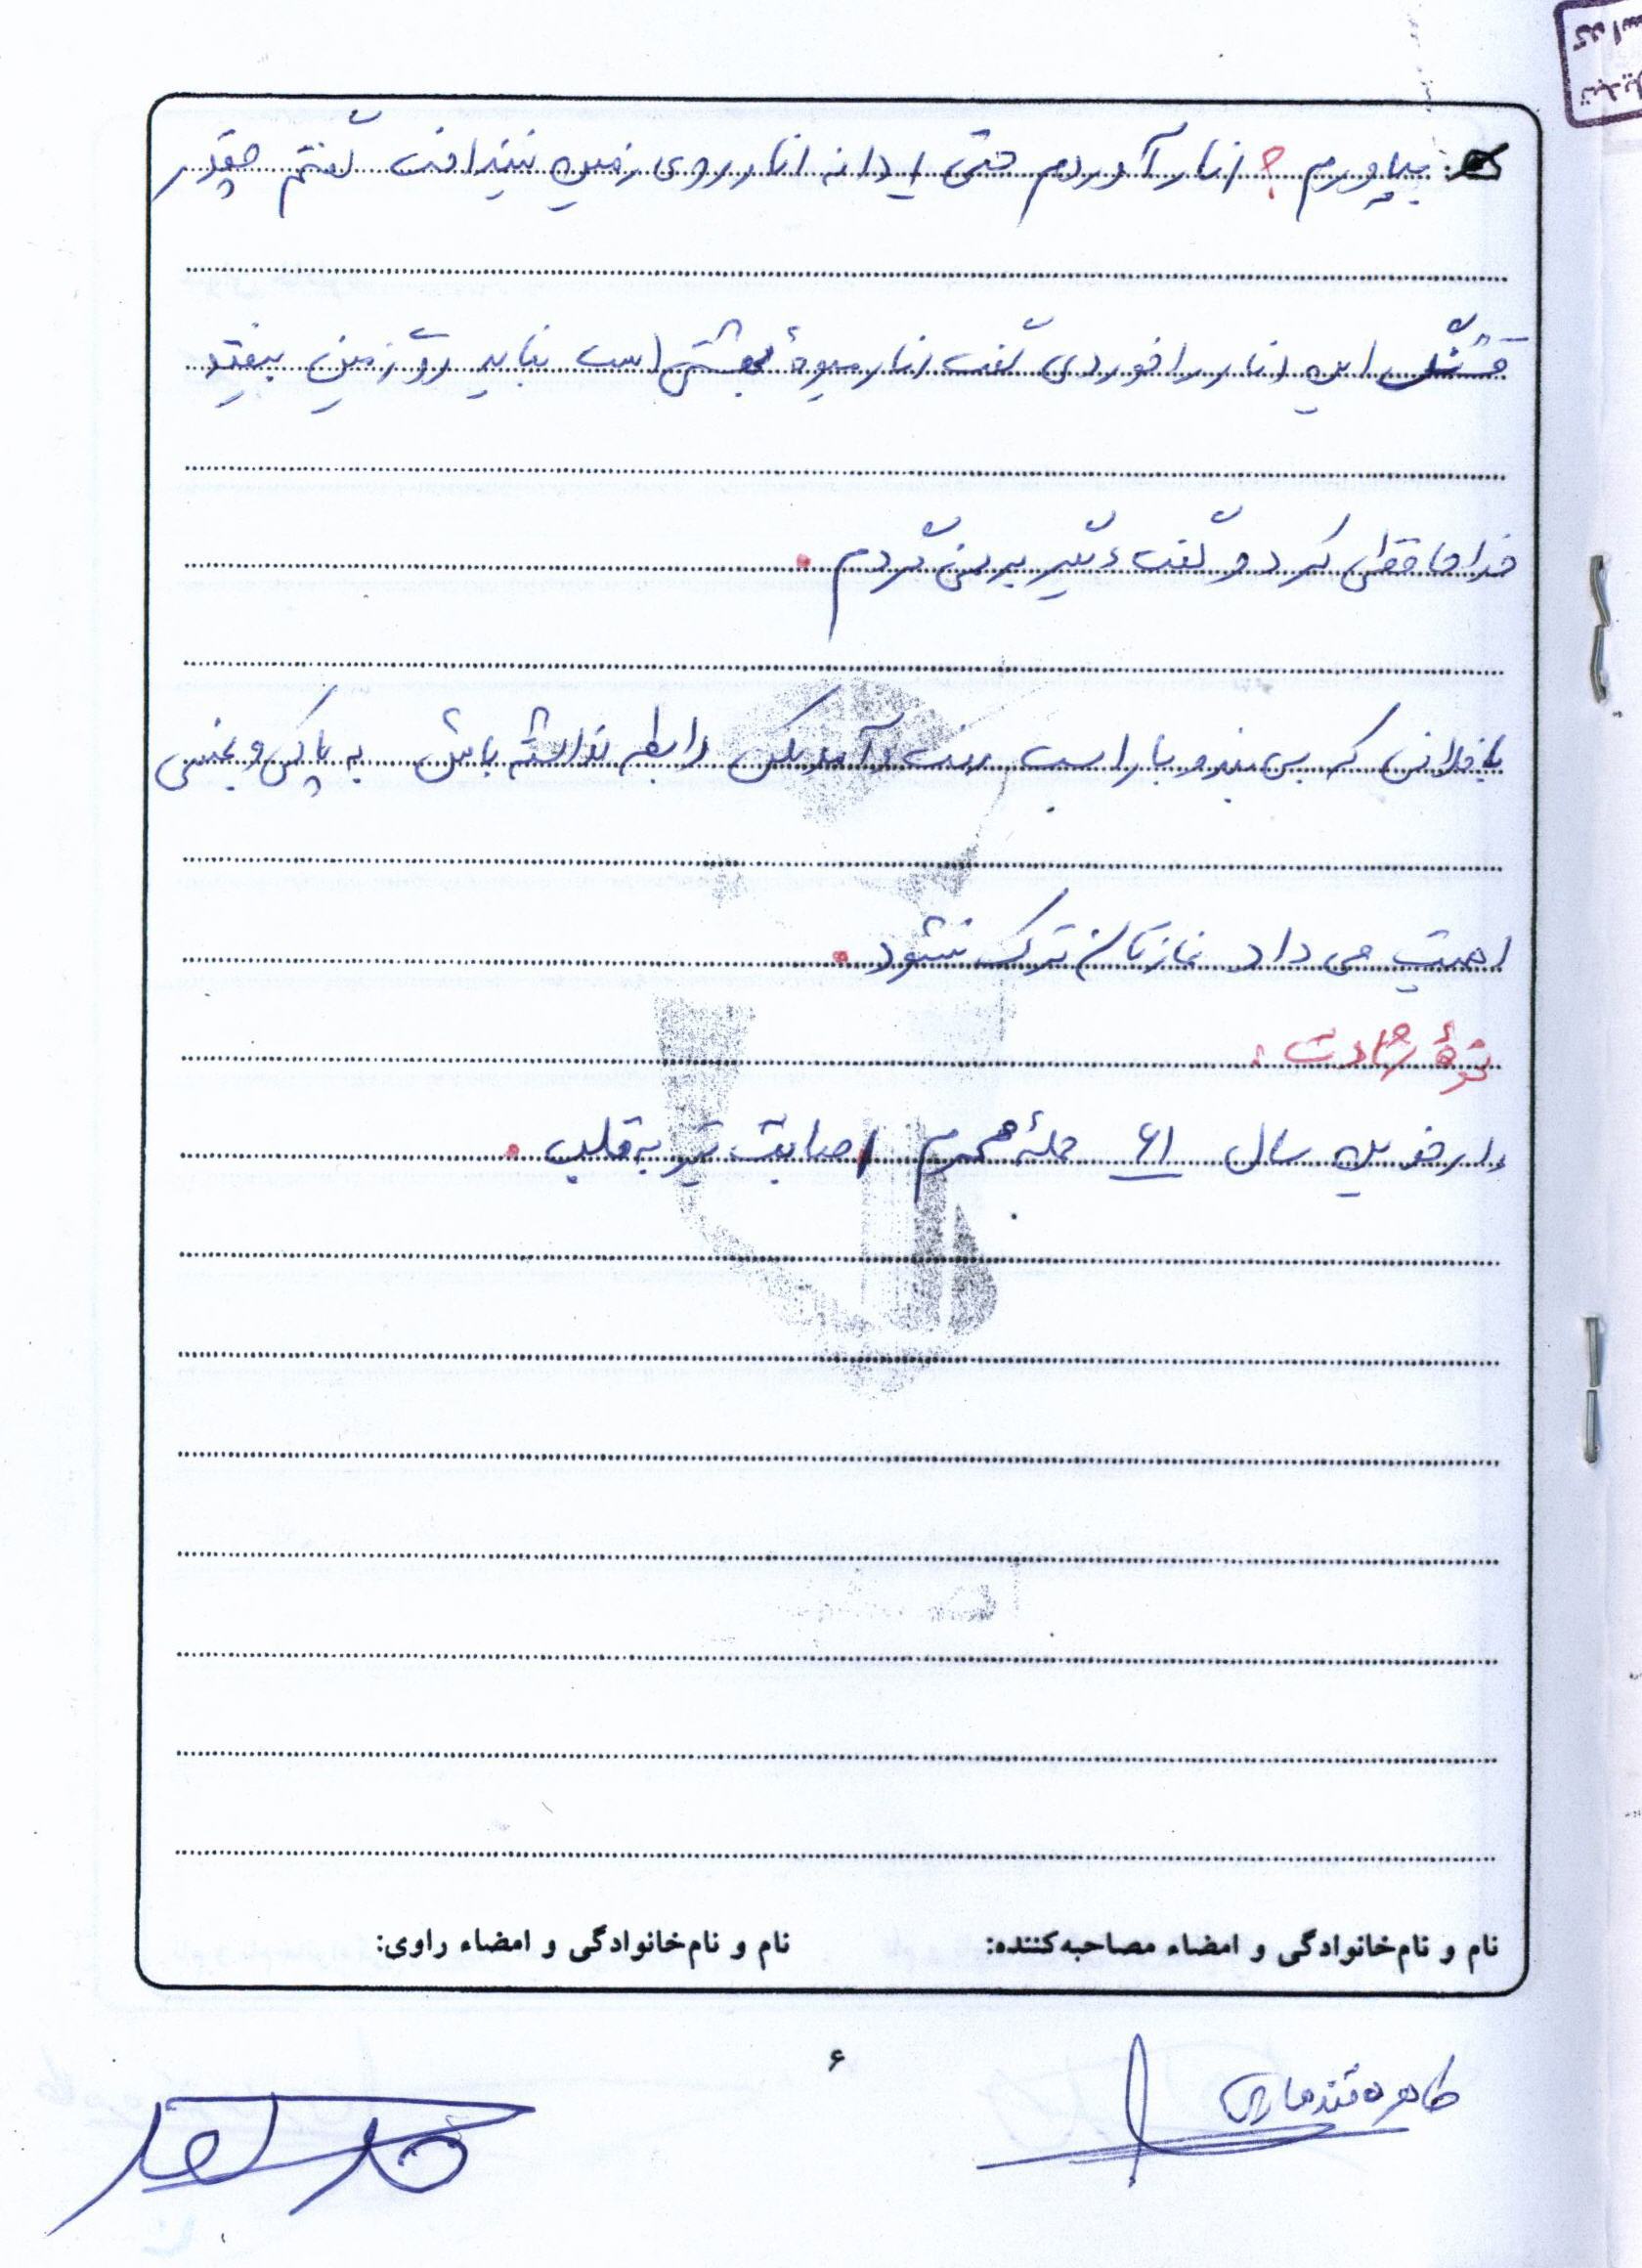 بیاورم ؟ انار آوردم حتی ۱ دانه انار روی زمین نینداخت گفتم چقدر
قشنگ این انار را خوردی گفت انار میوهٔ بهشتی است نباید روی زمین بیفتد
خداحافظی کرد و گفت دیگر برنمی گردم .
با فردی که بی بند و بار است رفت و آمد نکن رابطه نداشته باش به پاکی و نجسی
اهمیت می داد نمازتان ترک نشود .
نحوهٔ شهادت :
در خرداد سال ۶۱ حملهٔ محرم اصابت تیر به قلب .
نام و نام‌خانوادگی و امضاء مصاحبه‌کننده:
نام و نام‌خانوادگی و امضاء راوی:
۶
طاهره قندهاری